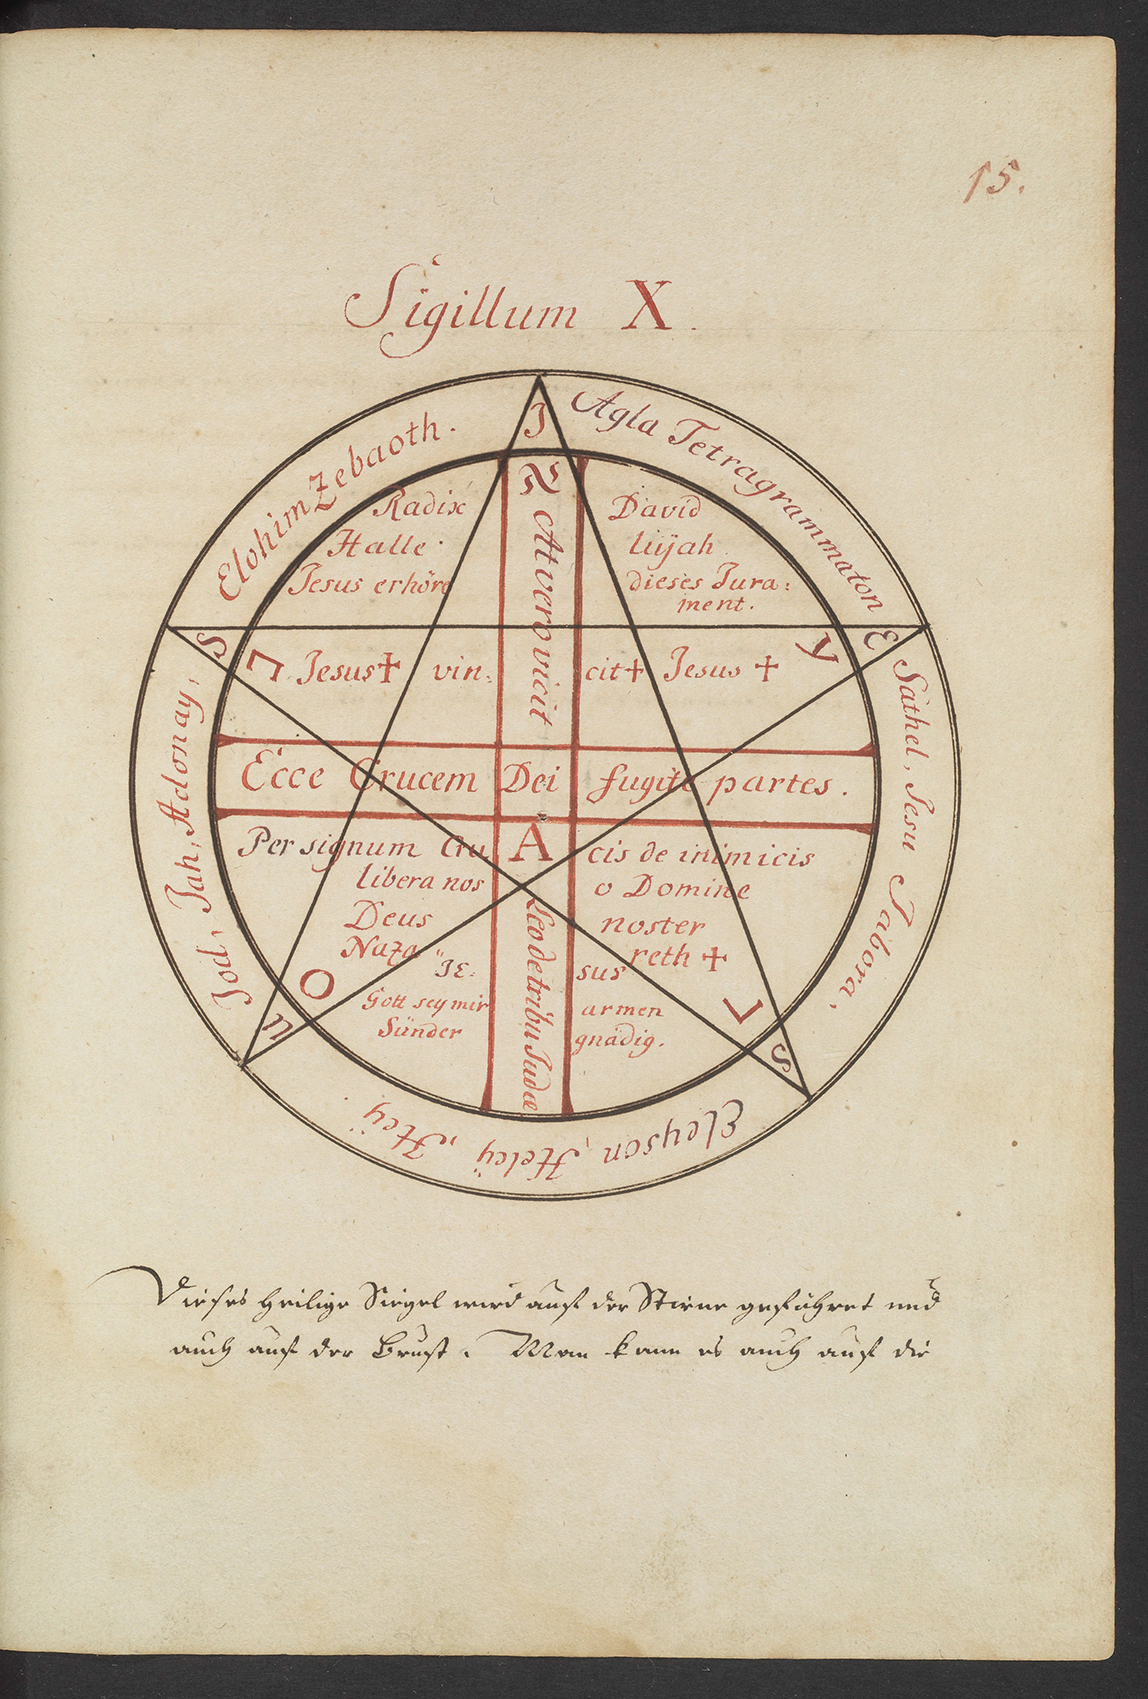 15.
Sigillum X.
Agla Tetragrammaton
Sathel, Jesu Tabora,
Eleyson, Heleÿ, Heÿ
Jod, Jah, Adonay,
Elohim Zebaoth.
J E S U S
Radix David
Halle lüjah
Jesus erhöre dieses Jura:
ment.
At vero vicit
L. Jesus + vin: cit + Jesus + Y
Ecce Crucem Dei fugite partes.
A
Leo de tribu Judæ
Per signum Cru cis de inimicis
libera nos o Domine
Deus noster
Naza reth +
O JE: sus L
Gott sey mir armen
Sünder gnädig.
Dieses heilige Siegel wird auf der Stirne geführet und
auch auf der Brust. Man kann es auch auf die